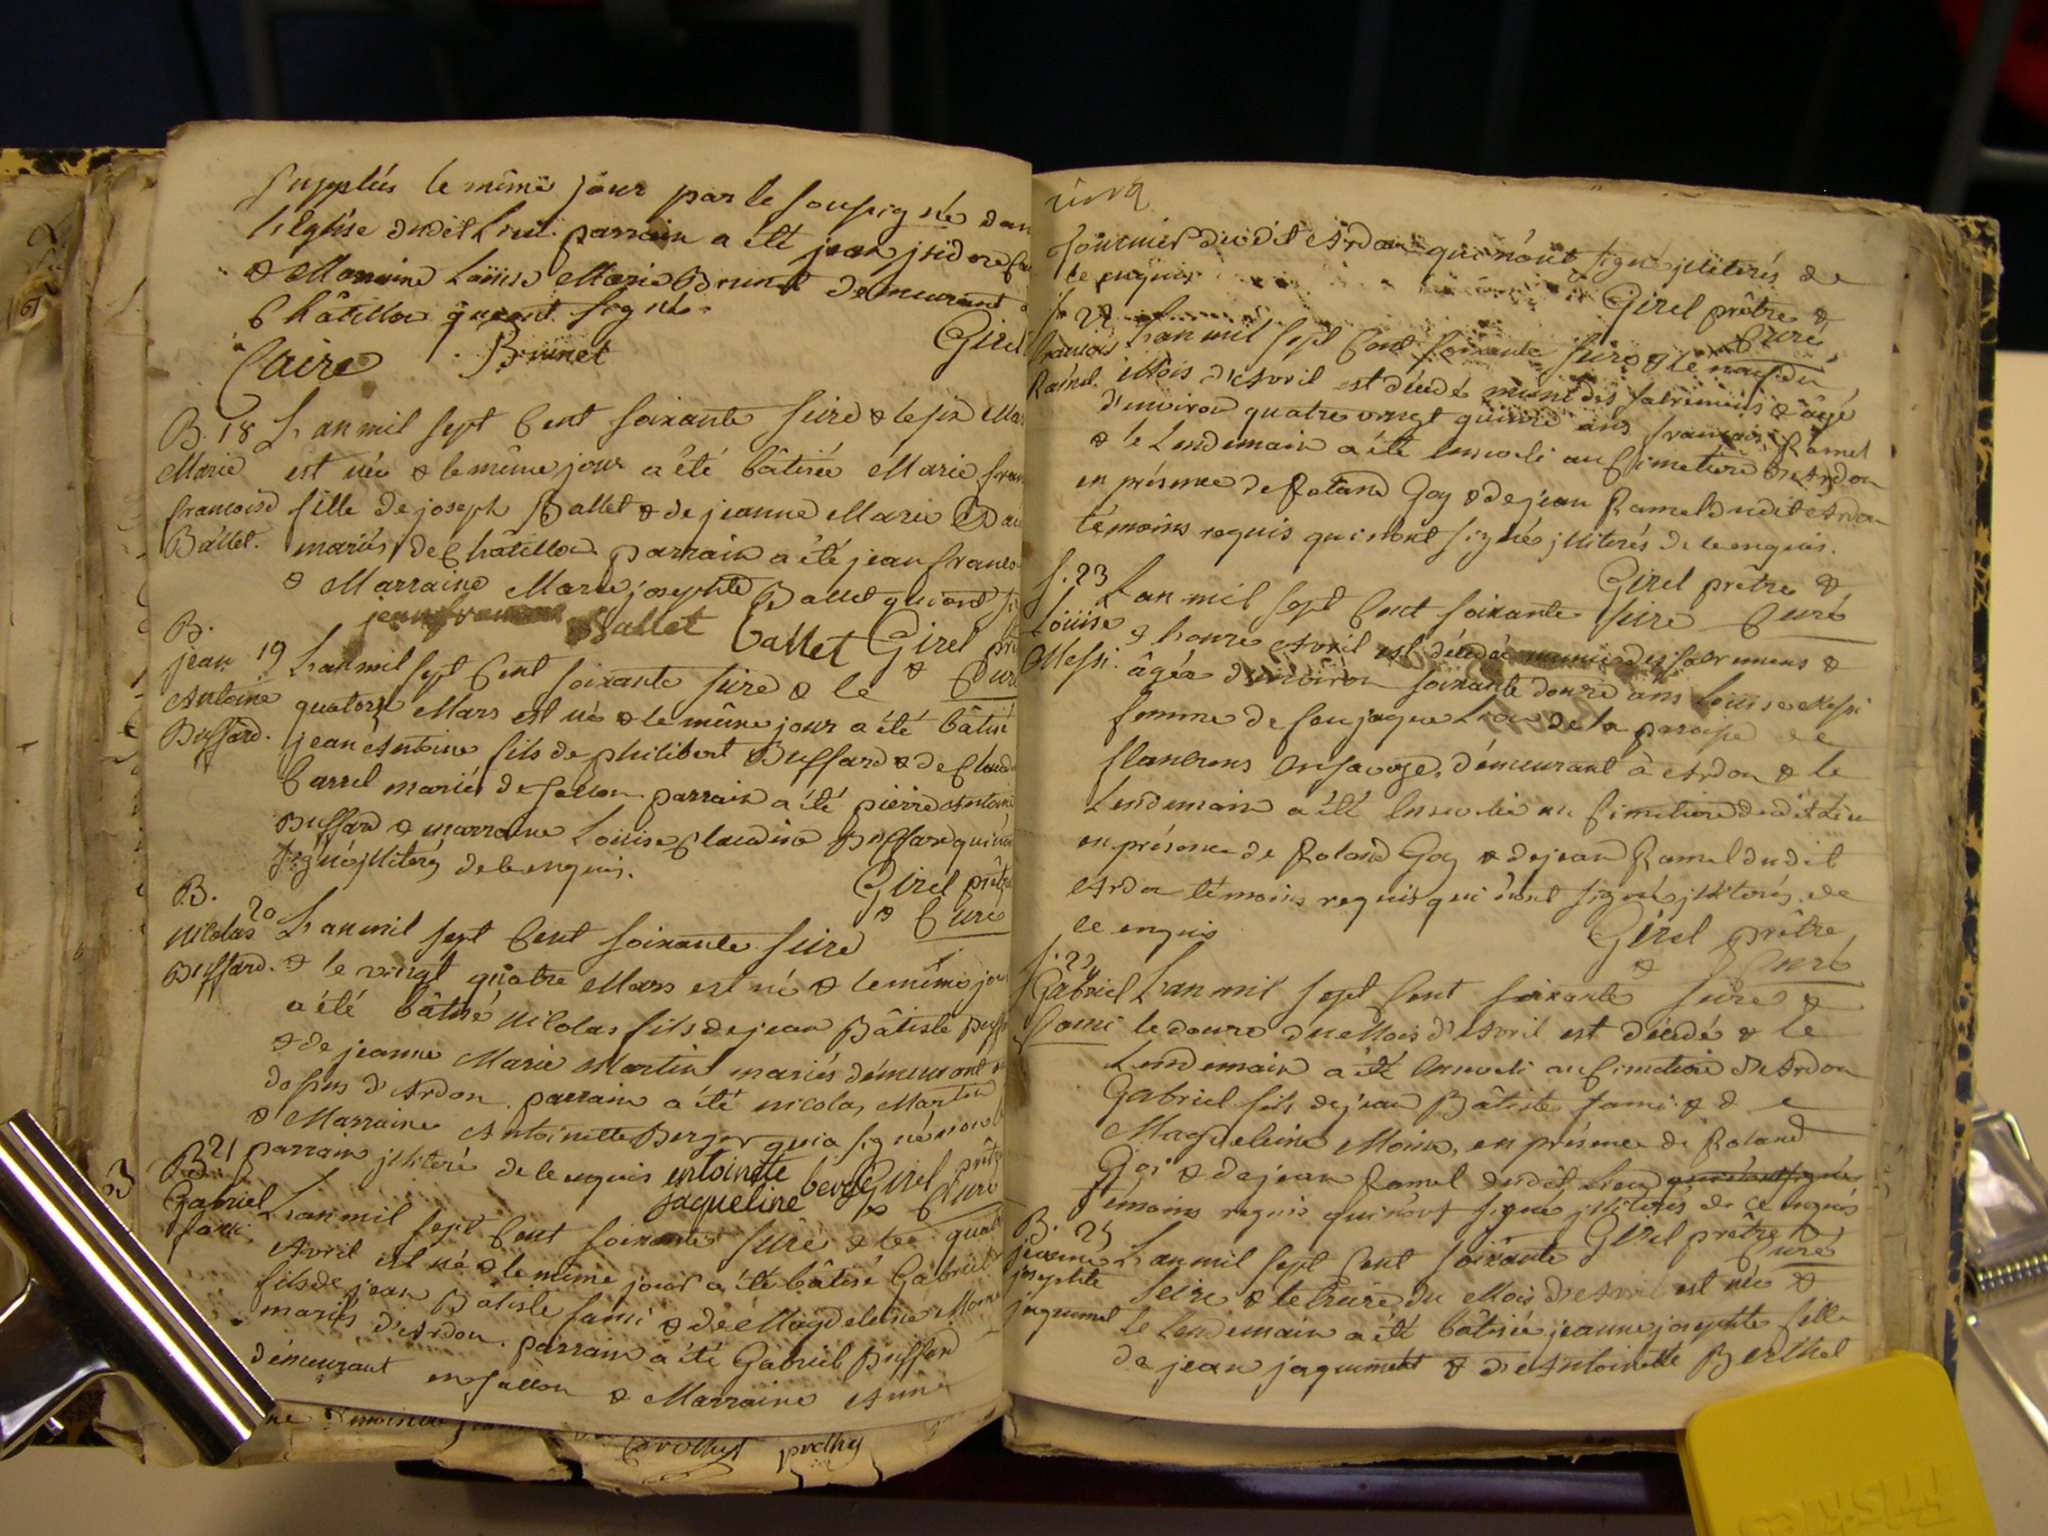 suppleés le même jour par le soussigné dan
l'Eglise dudit lieu. parrain a été jean jsidore
& Marraine Loüise Marie Brunet demeurant
Châtillon qui ont signé.
Caire Brunet Girel
B. 18 L'an mil sept Cent soixante seize & le six Mar
Marie est née & le même jour a été bâtisée Marie fran
francoise fille de joseph Ballet & de jeanne Marie
Ballet. mariés de Châtillon parrain a été jean francois
& Marraine Marie josephte Ballet qui ont
jean Ballet ballet Girel
B. & Curé
jean 19 L'an mil sept Cent soixante seize & le
Antoine quatorze Mars est né & le même jour a été bâtisé
Buffard. jean Antoine fils de philibert Buffard & de Claud
Carrel mariés de parrain a été pierre Antoine
Buffard & marraine Loüise Claudine Buffard qui n'on
signé jlliterés de ce enquis.
Girel prêtre
B. & Curé
20 L'an mil sept Cent soixante seize
Nicolas
Buffard. & le vingt quatre Mars est né & le même jou
a été bâtisé Nicolas fils de jean Bâtiste Buff
& de jeanne Marie Martin mariés démeurant
d'Ardon. parrain a été nicolas Martin
& Marraine Antoinette Berger qui a signé non le
B. 21 parrain jlliteré de ce enquis entoinette
jaqueline berge Girel prêtre
& Curé
Gabriel L'an mil sept Cent soixante seize & le quatre
fami Avril est né & le même jour a été bâtisé Gabriel
fils de jean Batiste fami & de Magdeleine Moine
mariés d'Ardon. parrain a été Gabriel Buffard
démeurant & Marraine Anne
cinq
dudit Ardon qui n'ont signé jlliterés de
ce enquis
Girel prêtre &
Curé
22 L'an mil sept Cent soixante seize & le neuf du
francois Mois d'Avril est décedé muni des sacremens & âgé
Ramel. d'environ quatre vingt quinze ans francois Ramel
& le Lendemain a été enseveli au Cimetiere d'Ardon
en présence de Roland Goy & de jean Ramel dudit Ardon
témoins requis qui n'ont signé jlliterés de ce enquis.
Girel prêtre &
Curé
S. 23 L'an mil sept Cent soixante seize
Loüise & le onze Avril est décedée munie des sacremens &
Messi. âgée d'environ soixante douze ans Loüise Messi
femme de feu jaque de la paroisse de
en savoye, démeurant à Ardon & le
Lendemain a été ensevelie au Cimetiere dudit Lieu
en présence de Roland Goy & de jean Ramel dudit
Ardon témoins requis qui n'ont signé jlliterés, de
ce enquis
Girel prêtre
& Curé
Gabriel L'an mil sept Cent soixante seize &
fami le douze du Mois d'Avril est décedé & le
Lendemain a été enseveli au Cimetiere d'Ardon
Gabriel fils de jean Bâtiste fami & de
Magdeleine Moine, en présence de Roland
Goi & de jean Ramel dudit Lieu
témoins requis qui n'ont signé jlliterés de ce enquis
Girel prêtre &
Curé
B. 25
jeanne L'an mil sept Cent soixante
josephte seize & le treize du Mois d'Avril est née &
jaquemet le Lendemain a été bâtisée jeanne josephte fille
de jean jaquemet & d'Antoinette Berthet